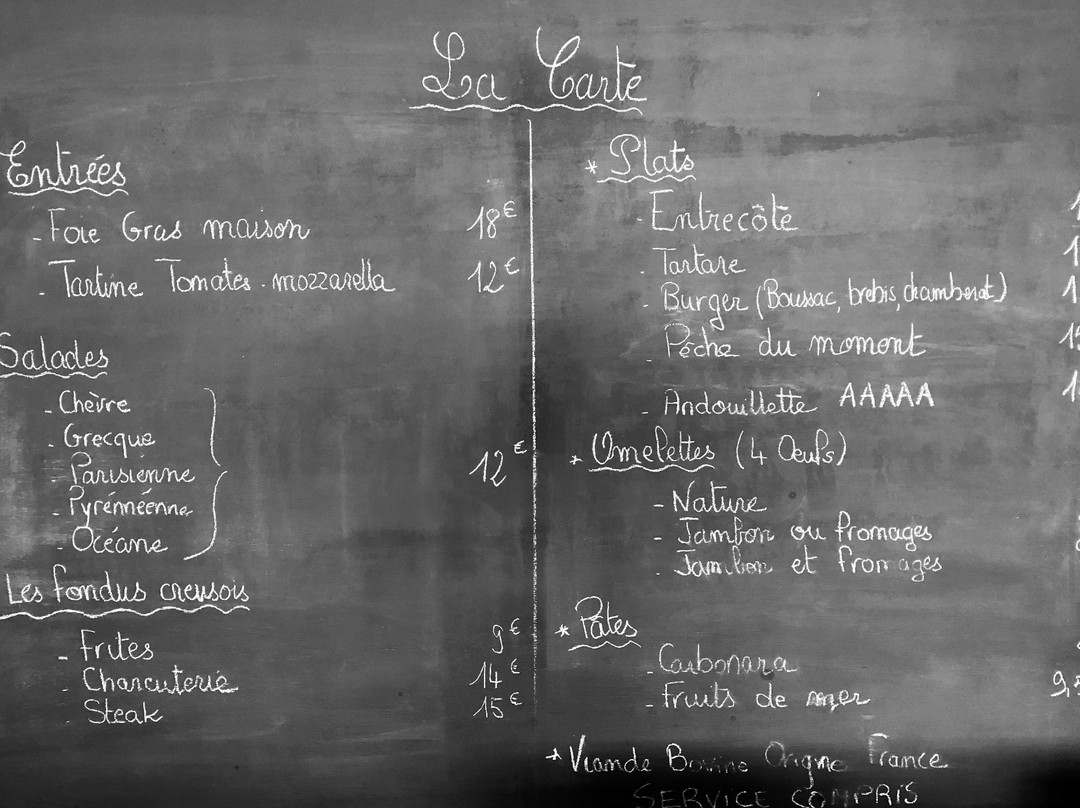 La Carte
Entrées
- Foie Gras maison 18€
- Tartine Tomates. mozzarella 12€
Salades
- Chèvre
- Grecque
- Parisienne 12€
- Pyrénnéenne
- Océane
Les fondus creusois
- Frites 9€
- Charcuterie 14€
- Steak 15€
* Plats
- Entrecôte
- Tartare
- Burger (Boussac, brebis, chamberat)
- Pêche du moment
- Andouillette AAAAA
* Omelettes (4 Oeufs)
- Nature
- Jambon ou fromages
- Jambon et fromages
* Pâtes
- Carbonara
- Fruits de mer 9,
* Viande Bovine Origine France
SERVICE COMPRIS